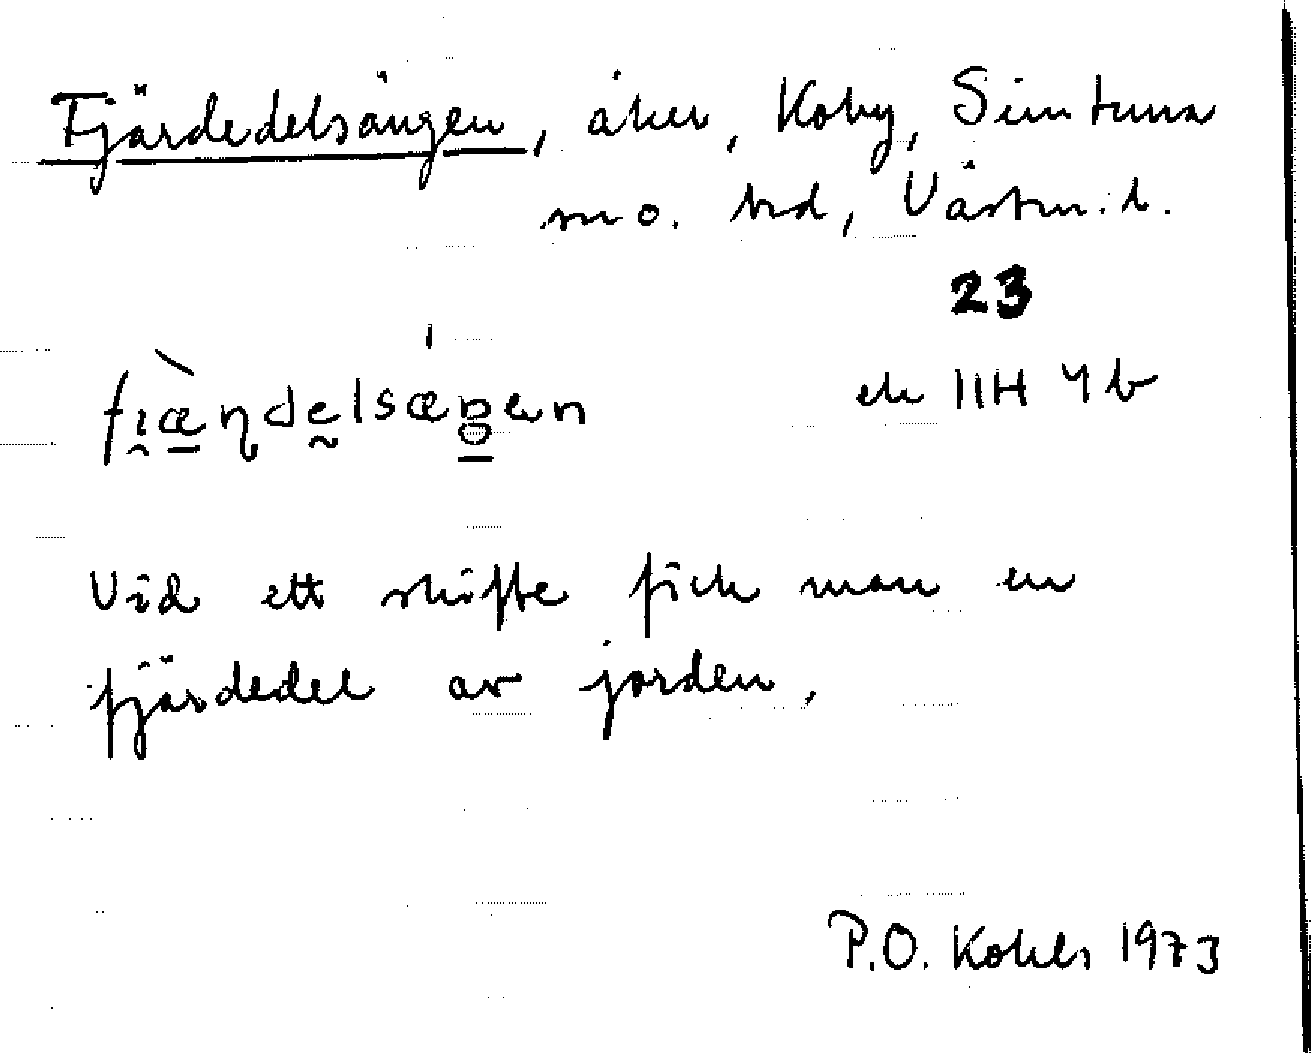 Fjärdedelsängen, åker, Koby, Simtuna
sn o. hd, Västm. l.
23
ek 11H 4b
Vid ett skifte fick man en
fjärdedel av jorden.
P.O. Kohls 1973